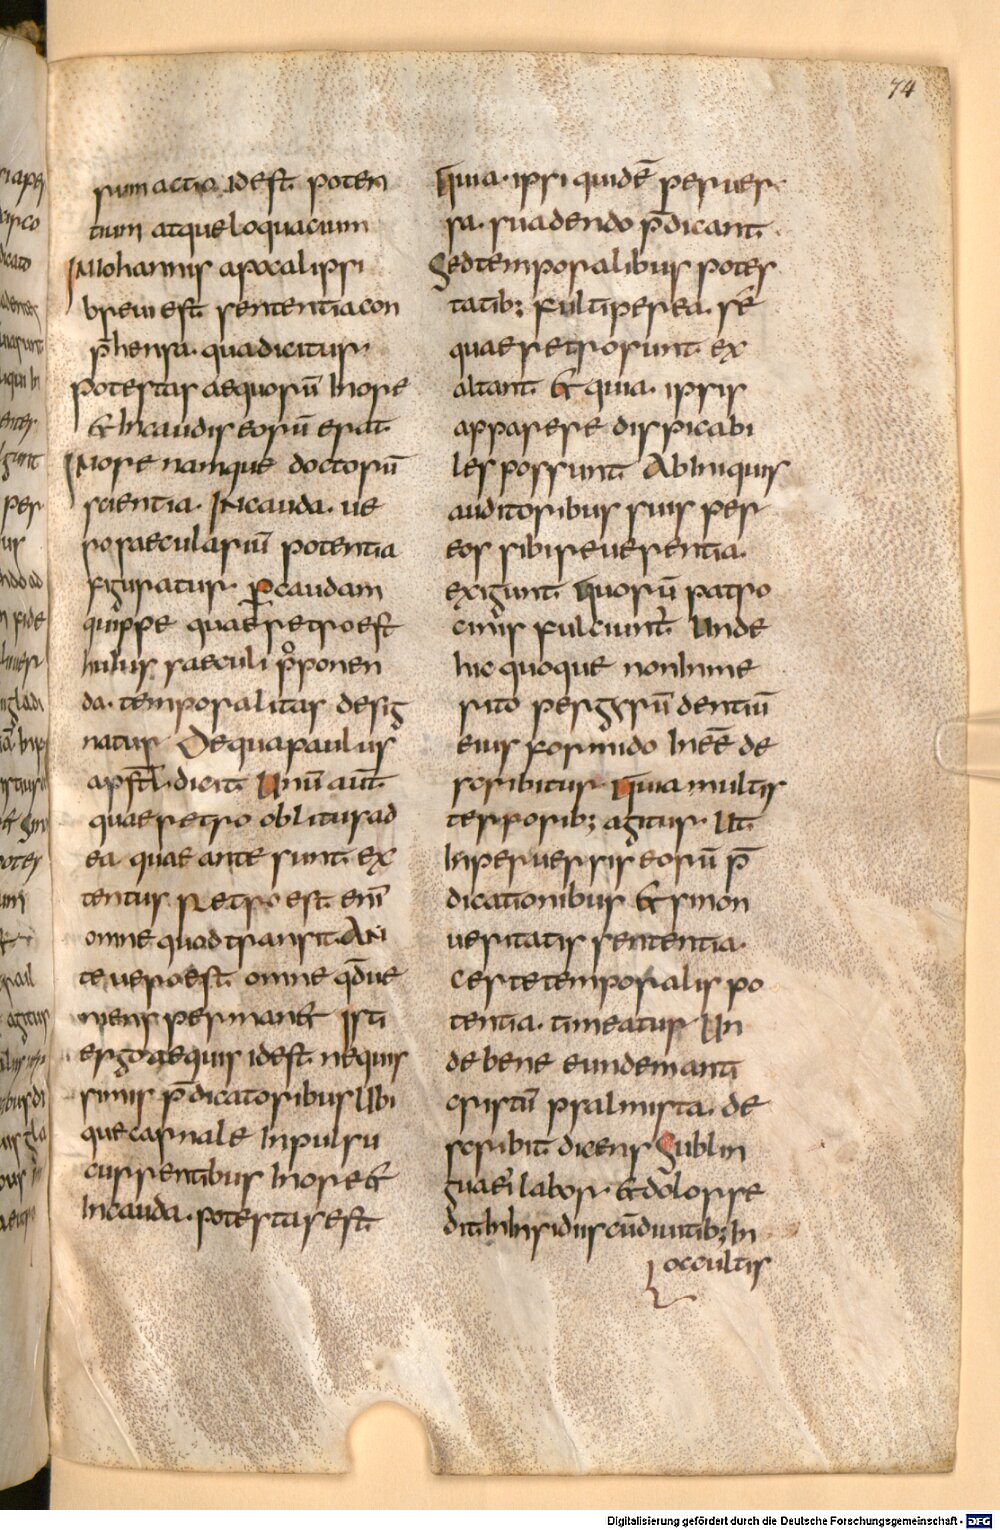 74
sumactio. id est. poten
tium atque loquacium
IN Iohannis apocalipsi
brevi est. sententia con
p̄hensa. qua dicitur
potestas aequorū in ore
& in caudis eorū erat.
IN ore namque doctorū
scientia. IN cauda. ue
ro saecularium̄ potentia
figuratur. Per caudam
quippe quae retro est
huius saeculi p̊ponen
da. temporalitas desig
natur De qua paulus
apstl. dicit. Unū aūt.
quae retro oblitus ad
ea quae ante sunt. ex
tentus Retro est. enī
omne quod transit. AN
te uero est. omne qđ ue
niens perman& Isti
ergo aequis id est. nequis
simis p̄dicatoribus Ubi
que carnale inpulsu
currentibus in ore &
in cauda. potestas est
Quia. ipsi quidē peruer
sa. suadendo p̄dicant.
Sed temporalibus potes
tatib; fulti per ea. sē
quae retrorsunt. ex
altant. & quia. ipsis
apparere dispicabi
les possunt Ab iniquis
auditoribus suis per
eos sibi reuerentia.
exigunt. Quorū patro
ciniis fulciunt. Unde
hic quoque non inme
rito per gyrū dentiū
eius formido inēē de
scribitur. Quia multis
terrorib; agitur. Ut.
in peruersis eorū p̄
dicationibus & si non
ueritatis sententia.
certe temporalis po
tentia. timeatur Un
de bene eundem anti
cristū psalmista. de
scribit. dicens Sub lin
gua ei labor. & dolor se
dit in insidiis cū diuitib; in
occultis
Digitalisierung gefördert durch die Deutsche Forschungsgemeinschaft - DFG